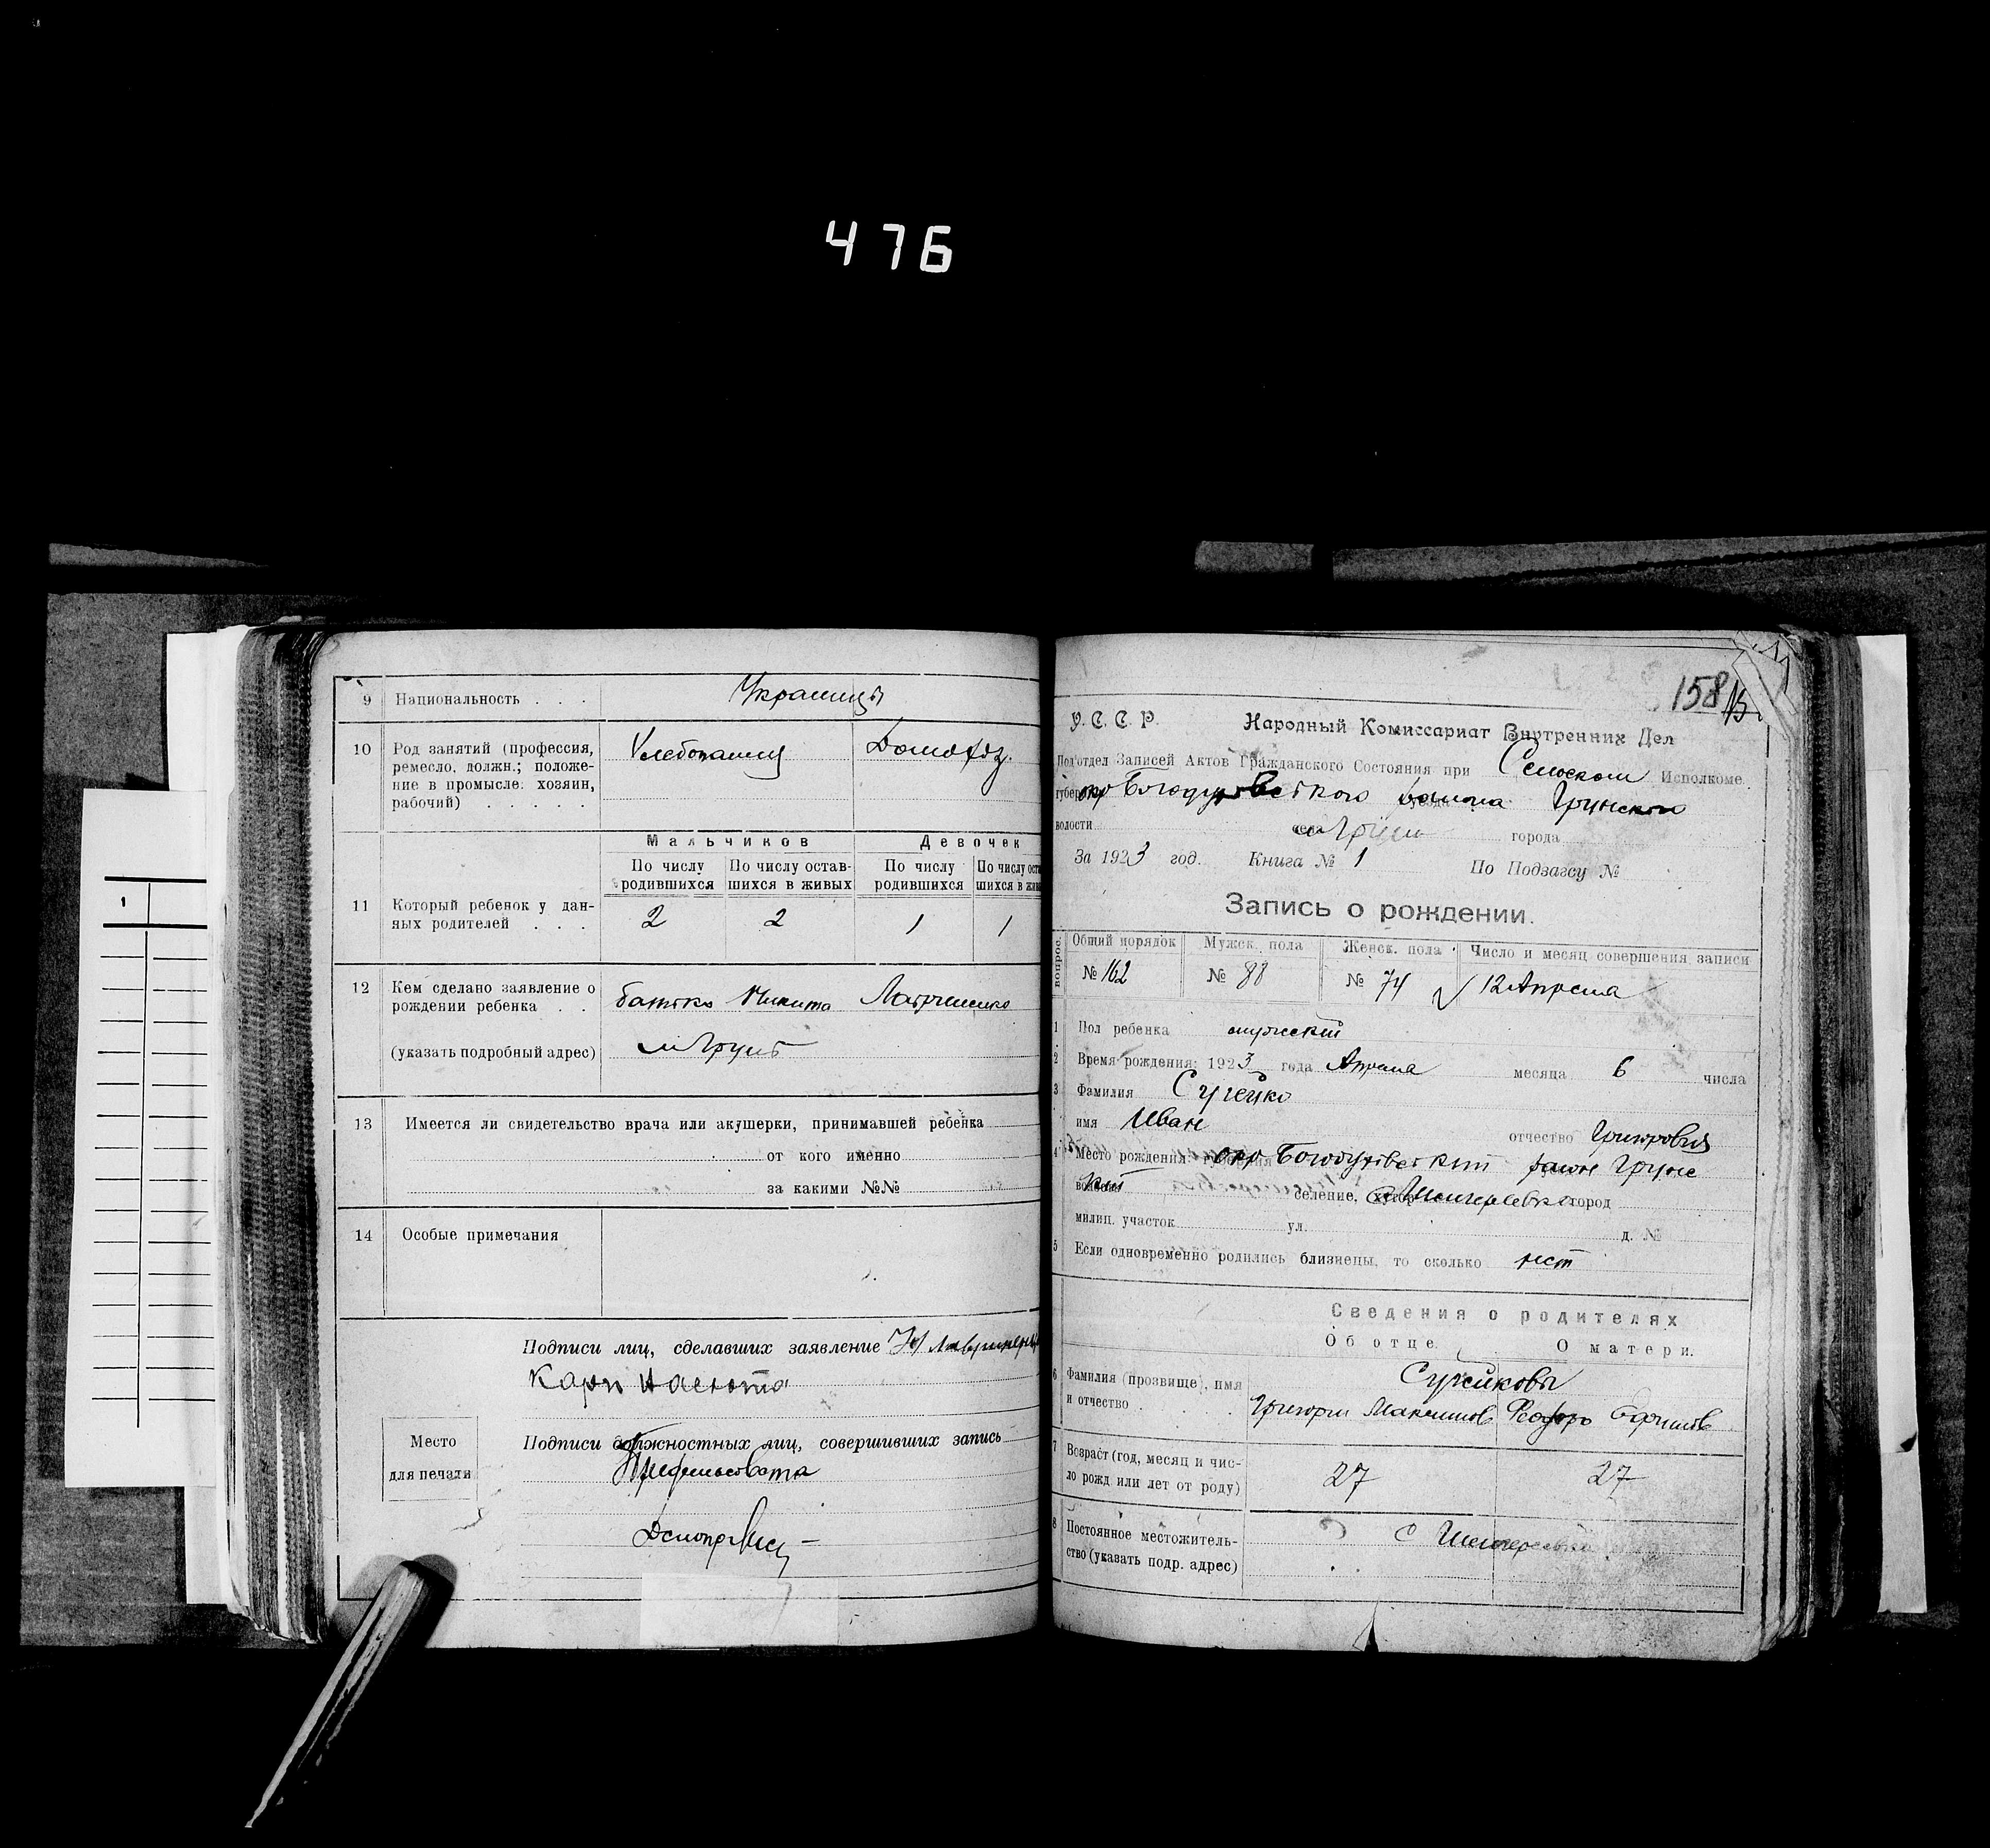 476
9 Национальность . . . Украинцы
10 Род занятий (профессия, ремесло, должн.; положение в промысле: хозяин, рабочий) . . . . . Хлебопашец Домохоз.
Мальчиков Девочек
По числу родившихся По числу оставшихся в живых По числу родившихся По числу оста шихся в жив
11 Который ребенок у данных родителей . . . 2 2 1 1
12 Кем сделано заявление о рождении ребенка . . батько Никита
(указать подробный адрес) м Грунь
13 Имеется ли свидетельство врача или акушерки, принимавшей ребенка
от кого именно
за какими №№
14 Особые примечания
Подписи лиц, сделавших заявление
Карп
Место для печати
Подписи должностных лиц, совершивших запись
1
158
У. С. С. Р. Народный Комиссариат Внутренних Дел
Под'отдел Записей Актов Гражданского Состояния при Сельском Исполкоме
губер окр Богодуховского района Грунского
волости село Грунь города
За 1923 год. Книга № 1 По Подзагсу №
Запись о рождении.
вопрос. Общий порядок Мужск. пола Женск. пола Число и месяц совершения записи
№ 162 № 88 № 74 12 Апреля
1 Пол ребенка мужский
2 Время рождения: 1923 года Апреля месяца 6 числа
3 Фамилия Сугейко
имя Иван отчество Григорович
4 Место рождения: окр Богодуховский район Грунс
кий селение, город
милиц. участок ул. д. №
5 Если одновременно родились близнецы, то сколько нет
Сведения о родителях
Об отце. О матери.
6 Фамилия (прозвище), имя и отчество . . . Сугейковы
Григорий Максимов
7 Возраст (год, месяц и число рожд или лет от роду) 27 27
8 Постоянное местожительство (указать подр. адрес) с